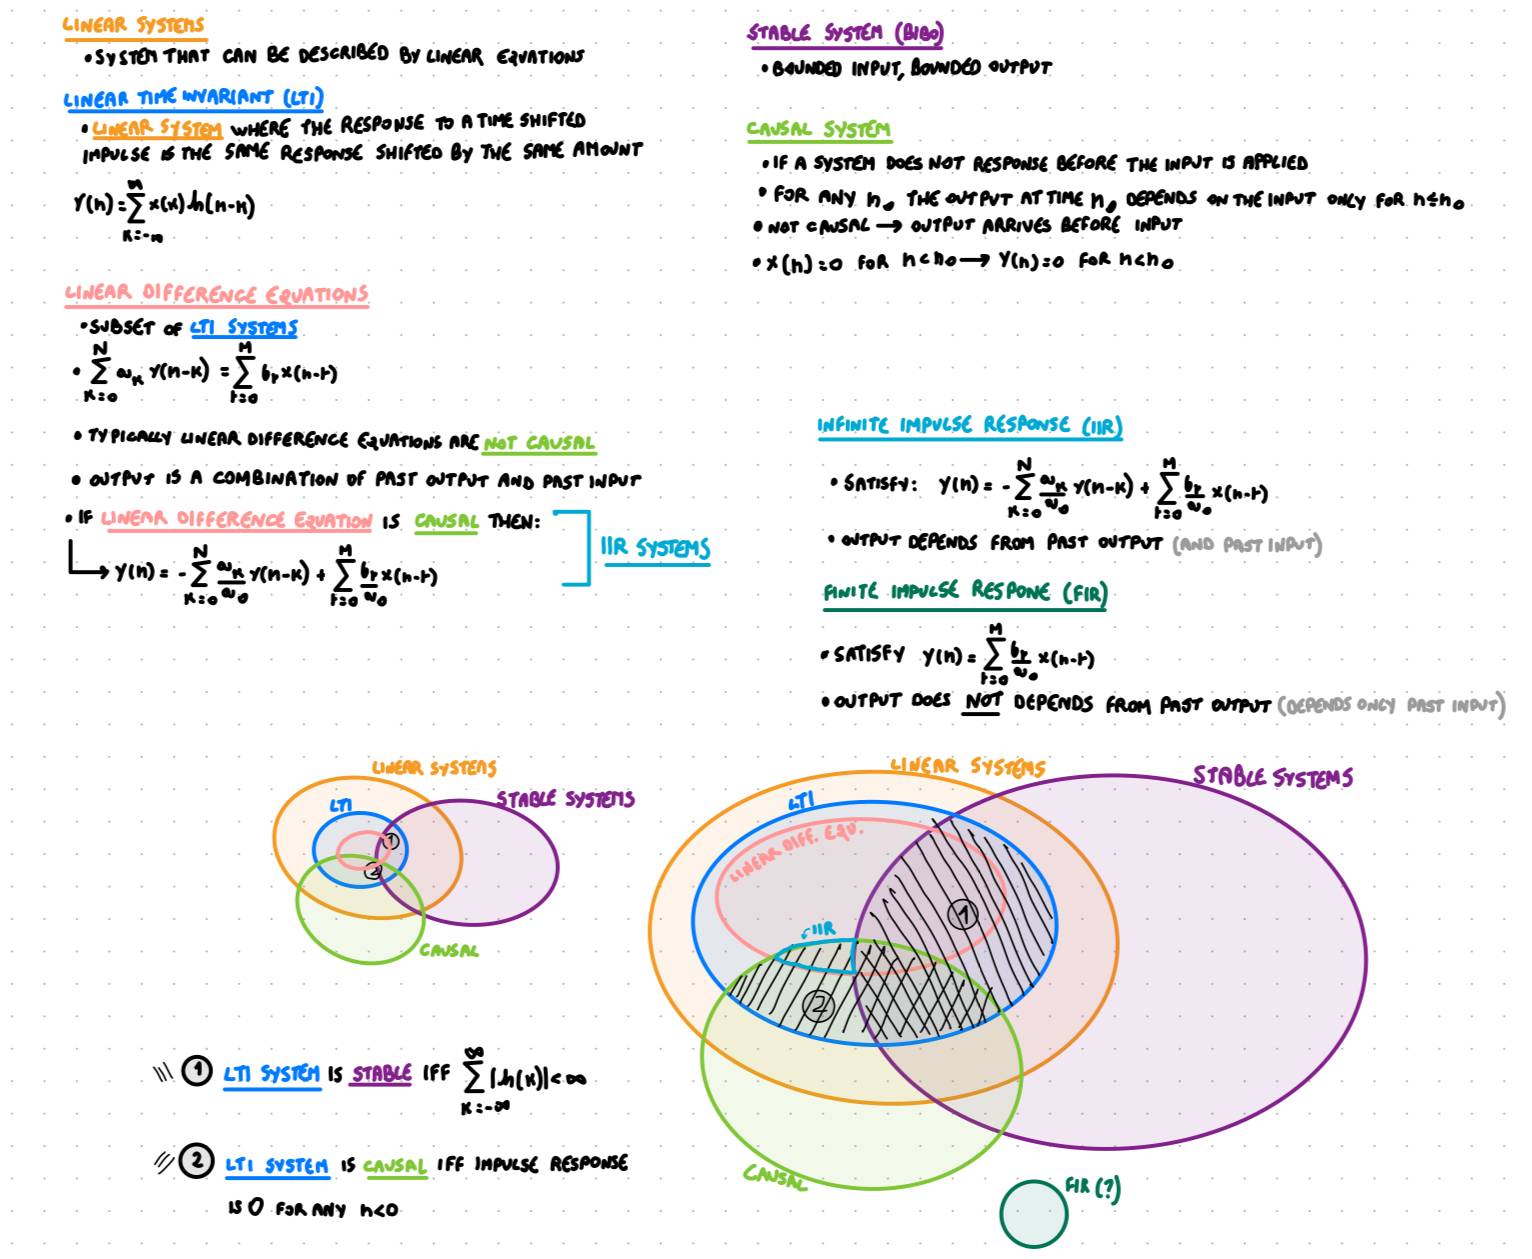 LINEAR SYSTEMS
• SYSTEM THAT CAN BE DESCRIBED BY LINEAR EQUATIONS
LINEAR TIME INVARIANT (LTI)
• LINEAR SYSTEM WHERE THE RESPONSE TO A TIME SHIFTED
IMPULSE IS THE SAME RESPONSE SHIFTED BY THE SAME AMOUNT
Y(n) = ∑_{K=-∞}^{∞} x(K) h(n-K)
LINEAR DIFFERENCE EQUATIONS
• SUBSET OF LTI SYSTEMS
• ∑_{K=0}^{N} a_K Y(n-K) = ∑_{r=0}^{M} b_r x(n-r)
• TYPICALLY LINEAR DIFFERENCE EQUATIONS ARE NOT CAUSAL
• OUTPUT IS A COMBINATION OF PAST OUTPUT AND PAST INPUT
• IF LINEAR DIFFERENCE EQUATION IS CAUSAL THEN:
→ Y(n) = - ∑_{K=0}^{N} a_K/a_0 Y(n-K) + ∑_{r=0}^{M} b_r/a_0 x(n-r)
IIR SYSTEMS
STABLE SYSTEM (BIBO)
• BOUNDED INPUT, BOUNDED OUTPUT
CAUSAL SYSTEM
• IF A SYSTEM DOES NOT RESPONSE BEFORE THE INPUT IS APPLIED
• FOR ANY n_0 THE OUTPUT AT TIME n_0 DEPENDS ON THE INPUT ONLY FOR n≤n_0
• NOT CAUSAL → OUTPUT ARRIVES BEFORE INPUT
• X(n)=0 FOR n<n_0 → Y(n)=0 FOR n<n_0
INFINITE IMPULSE RESPONSE (IIR)
• SATISFY: Y(n) = - ∑_{K=0}^{N} a_K/a_0 Y(n-K) + ∑_{r=0}^{M} b_r/a_0 x(n-r)
• OUTPUT DEPENDS FROM PAST OUTPUT (AND PAST INPUT)
FINITE IMPULSE RESPONE (FIR)
• SATISFY Y(n) = ∑_{r=0}^{M} b_r/a_0 x(n-r)
• OUTPUT DOES NOT DEPENDS FROM PAST OUTPUT (DEPENDS ONLY PAST INPUT)
LINEAR SYSTEMS
LTI
STABLE SYSTEMS
1
2
CAUSAL
LINEAR SYSTEMS
STABLE SYSTEMS
LTI
LINEAR DIFF. EQU.
1
IIR
2
CAUSAL
FIR (?)
1 LTI SYSTEM IS STABLE IFF ∑_{K=-∞}^{∞} |h(K)| < ∞
2 LTI SYSTEM IS CAUSAL IFF IMPULSE RESPONSE
IS 0 FOR ANY n<0